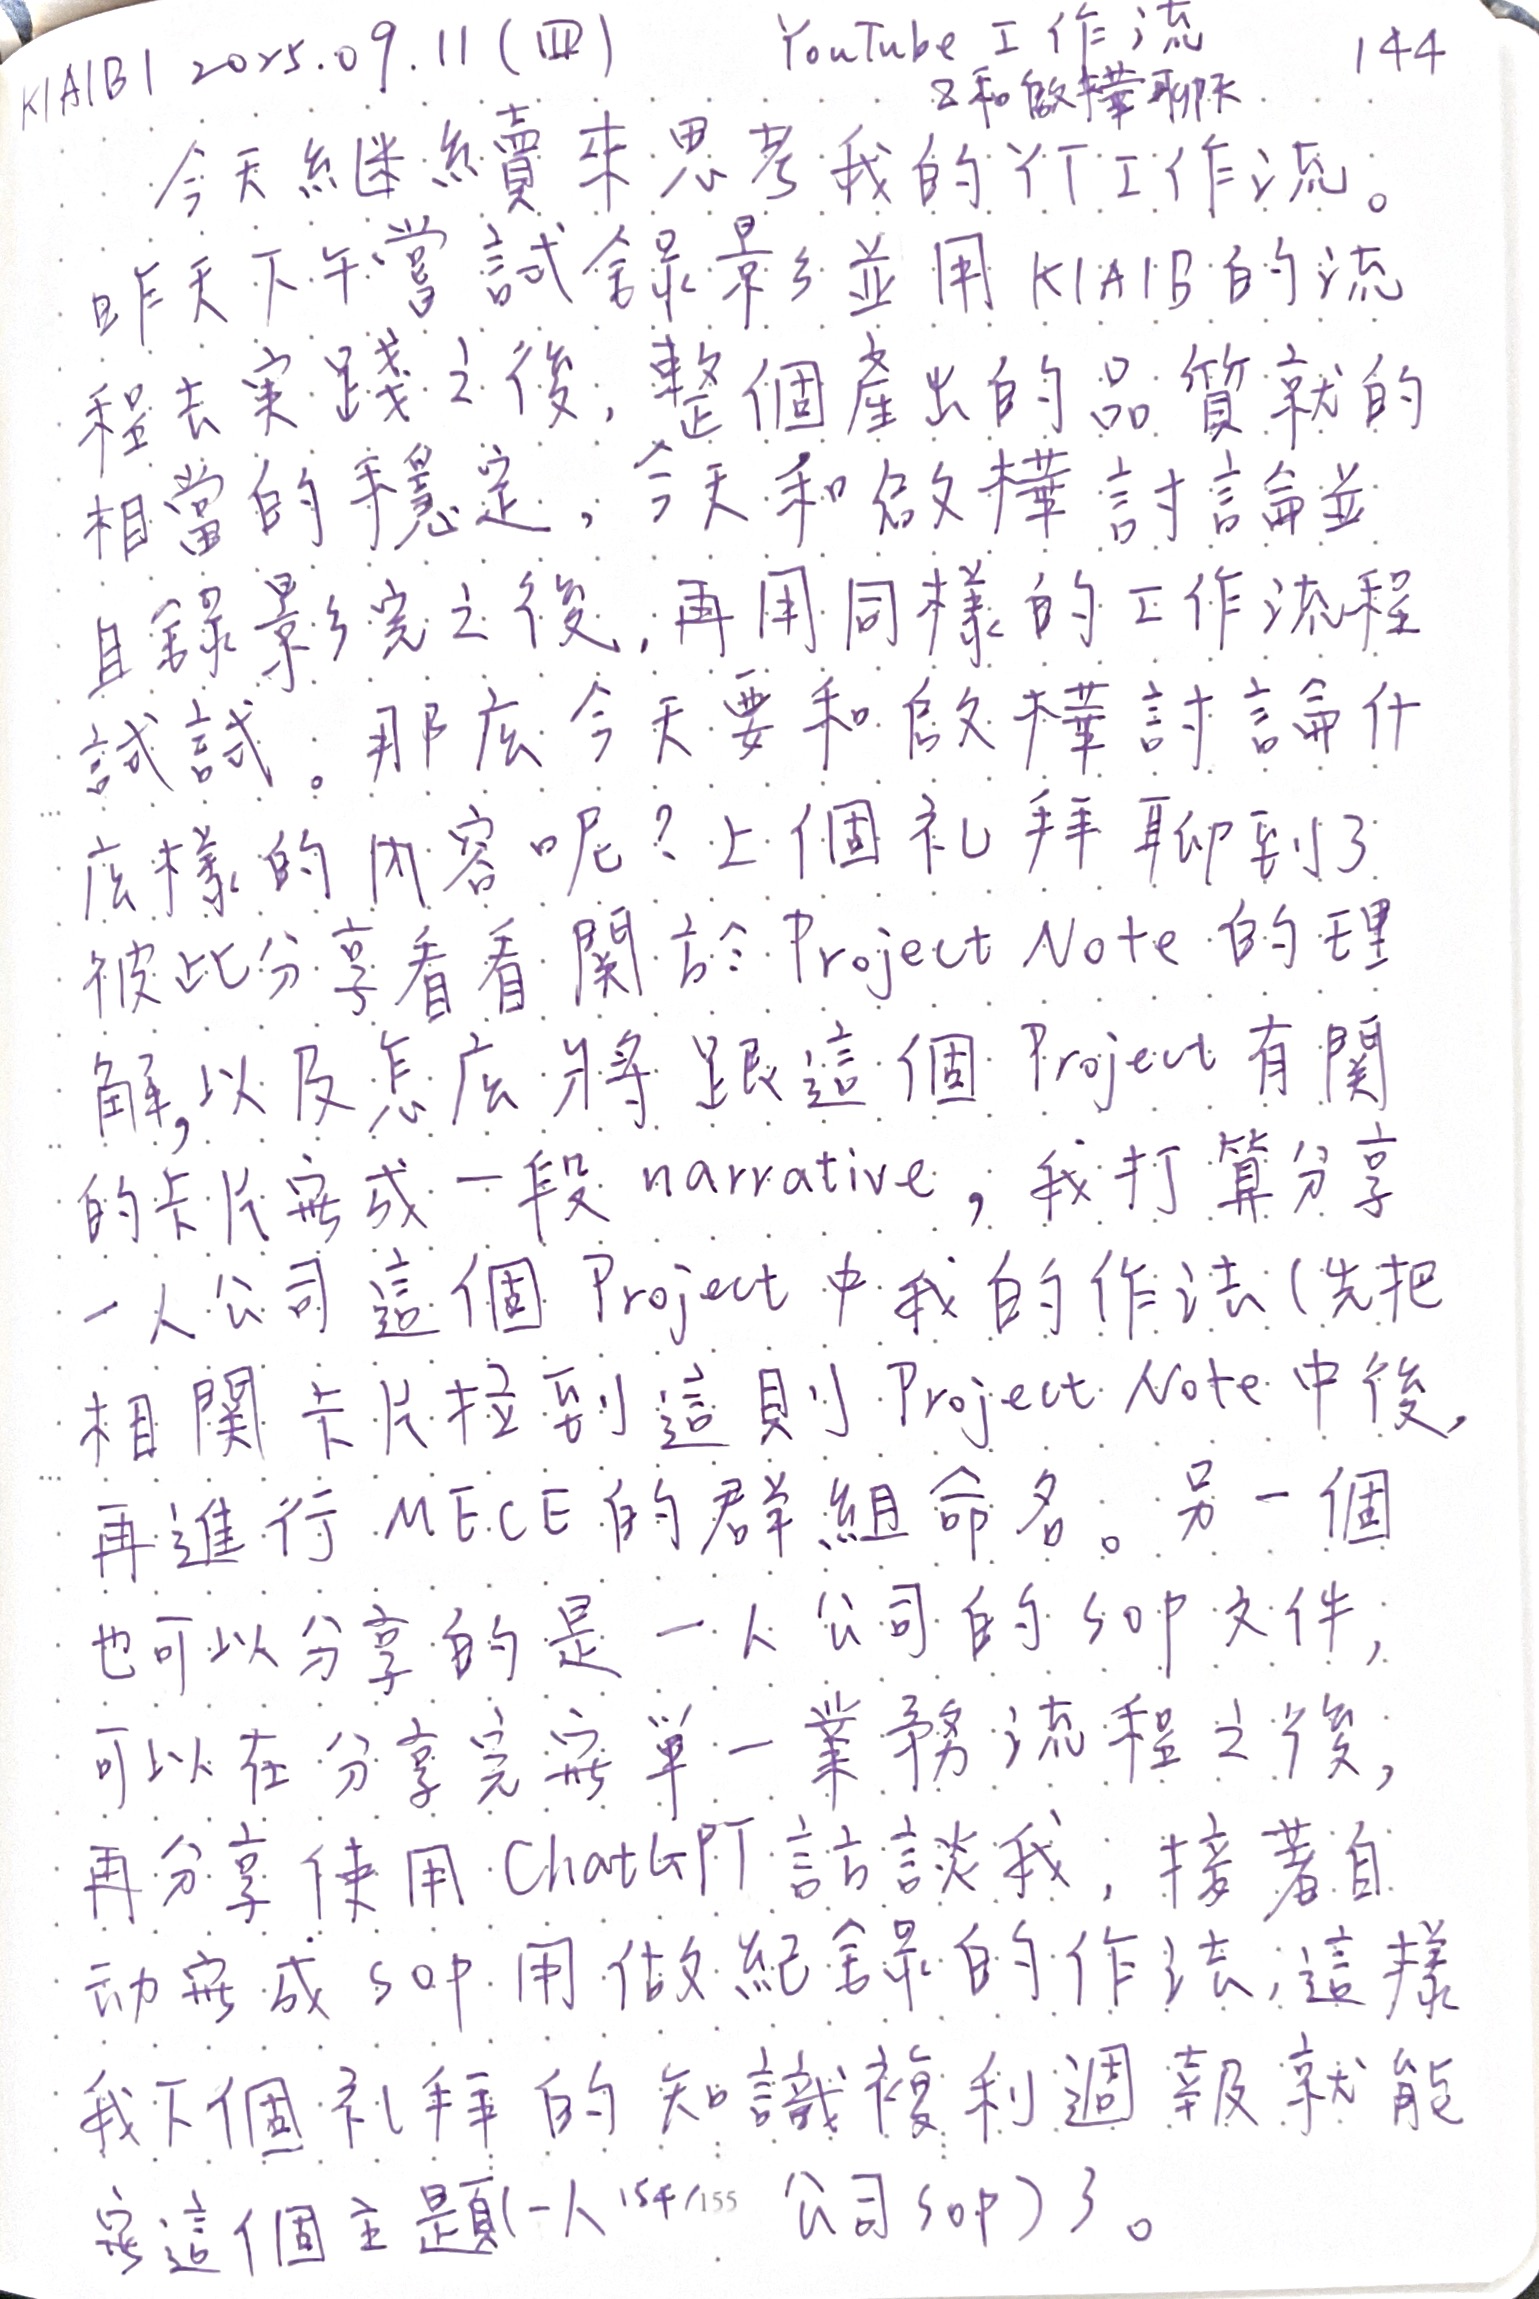 K/A/B/ 2025.09.11 (四) YouTube 工作流 144
&和啟樺聊天
今天繼續來思考我的YT工作流。
昨天下午嘗試錄影並用K/A/B的流
程去实踐之後,整個產出的品質就的
相當的穩定,今天和啟樺討論並
且錄影完之後,再用同樣的工作流程
試試。那庅今天要和啟樺討論什
庅樣的內容呢?上個礼拜聊到了
彼此分享看看関於Project Note的理
解,以及怎庅將跟這個Project有関
的卡片寫成一段narrative,我打算分享
一人公司這個Project中我的作法(先把
相関卡片拉到這則Project Note中後,
再進行MECE的群組命名。另一個
也可以分享的是一人公司的SOP文件,
可以在分享完寫單一業務流程之後,
再分享使用ChatGPT訪談我,接著自
动寫成SOP用做紀錄的作法,這樣
我下個礼拜的知識複利週報就能
寫這個主題(一人公司SOP)了。
154/155